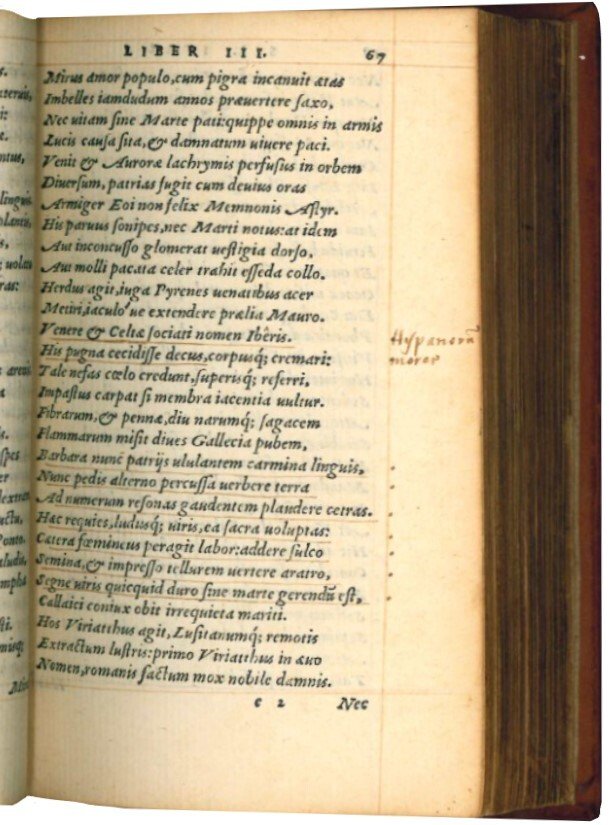 LIBER III. 67
Mirus amor populo, cum pigra incanuit ætas
Imbelles iamdudum annos præuertere saxo,
Nec uitam sine Marte pati: quippe omnis in armis
Lucis causa sita, & damnatum uiuere paci.
Venit & Auroræ lachrymis perfusus in orbem
Diuersum, patrias fugit cum deuius oras
Armiger Eoi non felix Memnonis Astyr.
His paruus sonipes, nec Marti notus: at idem
Aut inconcusso glomerat uestigia dorso,
Aut molli pacata celer trahit esseda collo.
Herdus agit, iuga Pyrenes uenatibus acer
Metiri, iaculo'ue extendere prælia Mauro.
Venere & Celtæ sociati nomen Ibêris.
His pugna cecidisse decus, corpusq; cremari:
Tale nefas cœlo credunt, superisq; referri,
Impastus carpat si membra iacentia uultur.
Fibrarum, & pennæ, diu narumq; sagacem
Flammarum misit diues Gallecia pubem,
Barbara nunc patrijs ululantem carmina linguis,
Nunc pedis alterno percussa uerbere terra
Ad numerum resonas gaudentem plaudere cetras.
Hæc requies, ludusq; uiris, ea sacra uoluptas:
Cætera fœmineus peragit labor: addere sulco
Semina, & impresso tellurem uertere aratro,
Segne uiris quicquid duro sine marte gerendũ est,
Callaici coniux obit irrequieta mariti.
Hos Viriatthus agit, Lusitanumq; remotis
Extractum lustris: primo Viriatthus in æuo
Nomen, romanis factum mox nobile damnis.
c 2 Nec
Hyspanorũ
mores